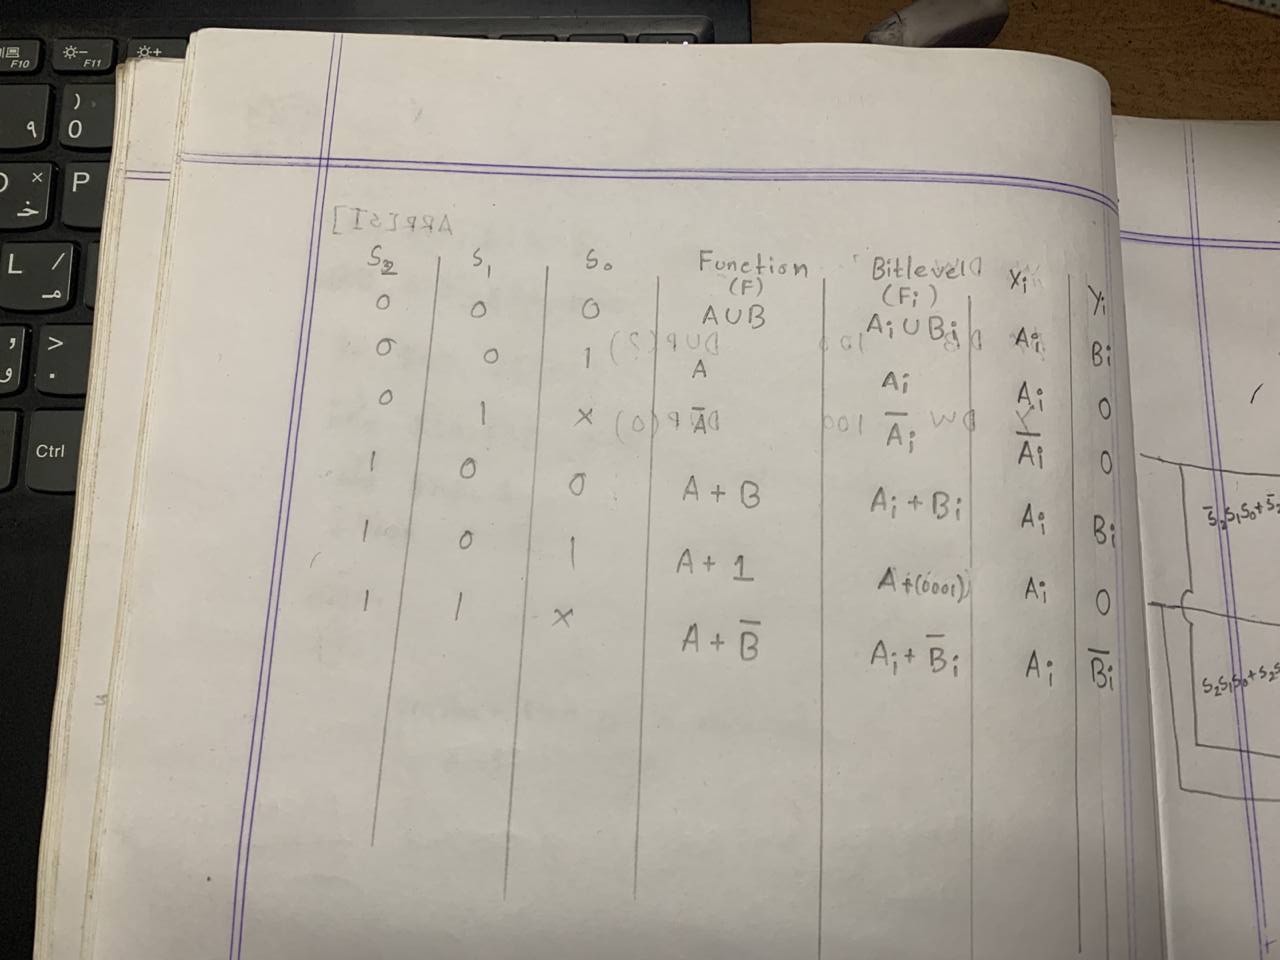 F10
F11
9
)
0
×
P
خ
L /
م
>
و
.
Ctrl
S2 S1 S0 Function (F) Bitlevel (Fi) Xi Yi
0 0 0 A∪B Ai∪Bi Ai Bi
0 0 1 A Ai Ai 0
0 1 × A̅ A̅i A̅i 0
1 0 0 A + B Ai + Bi Ai Bi
1 0 1 A + 1 A+(0001) Ai 0
1 1 × A + B̅ Ai + B̅i Ai B̅i